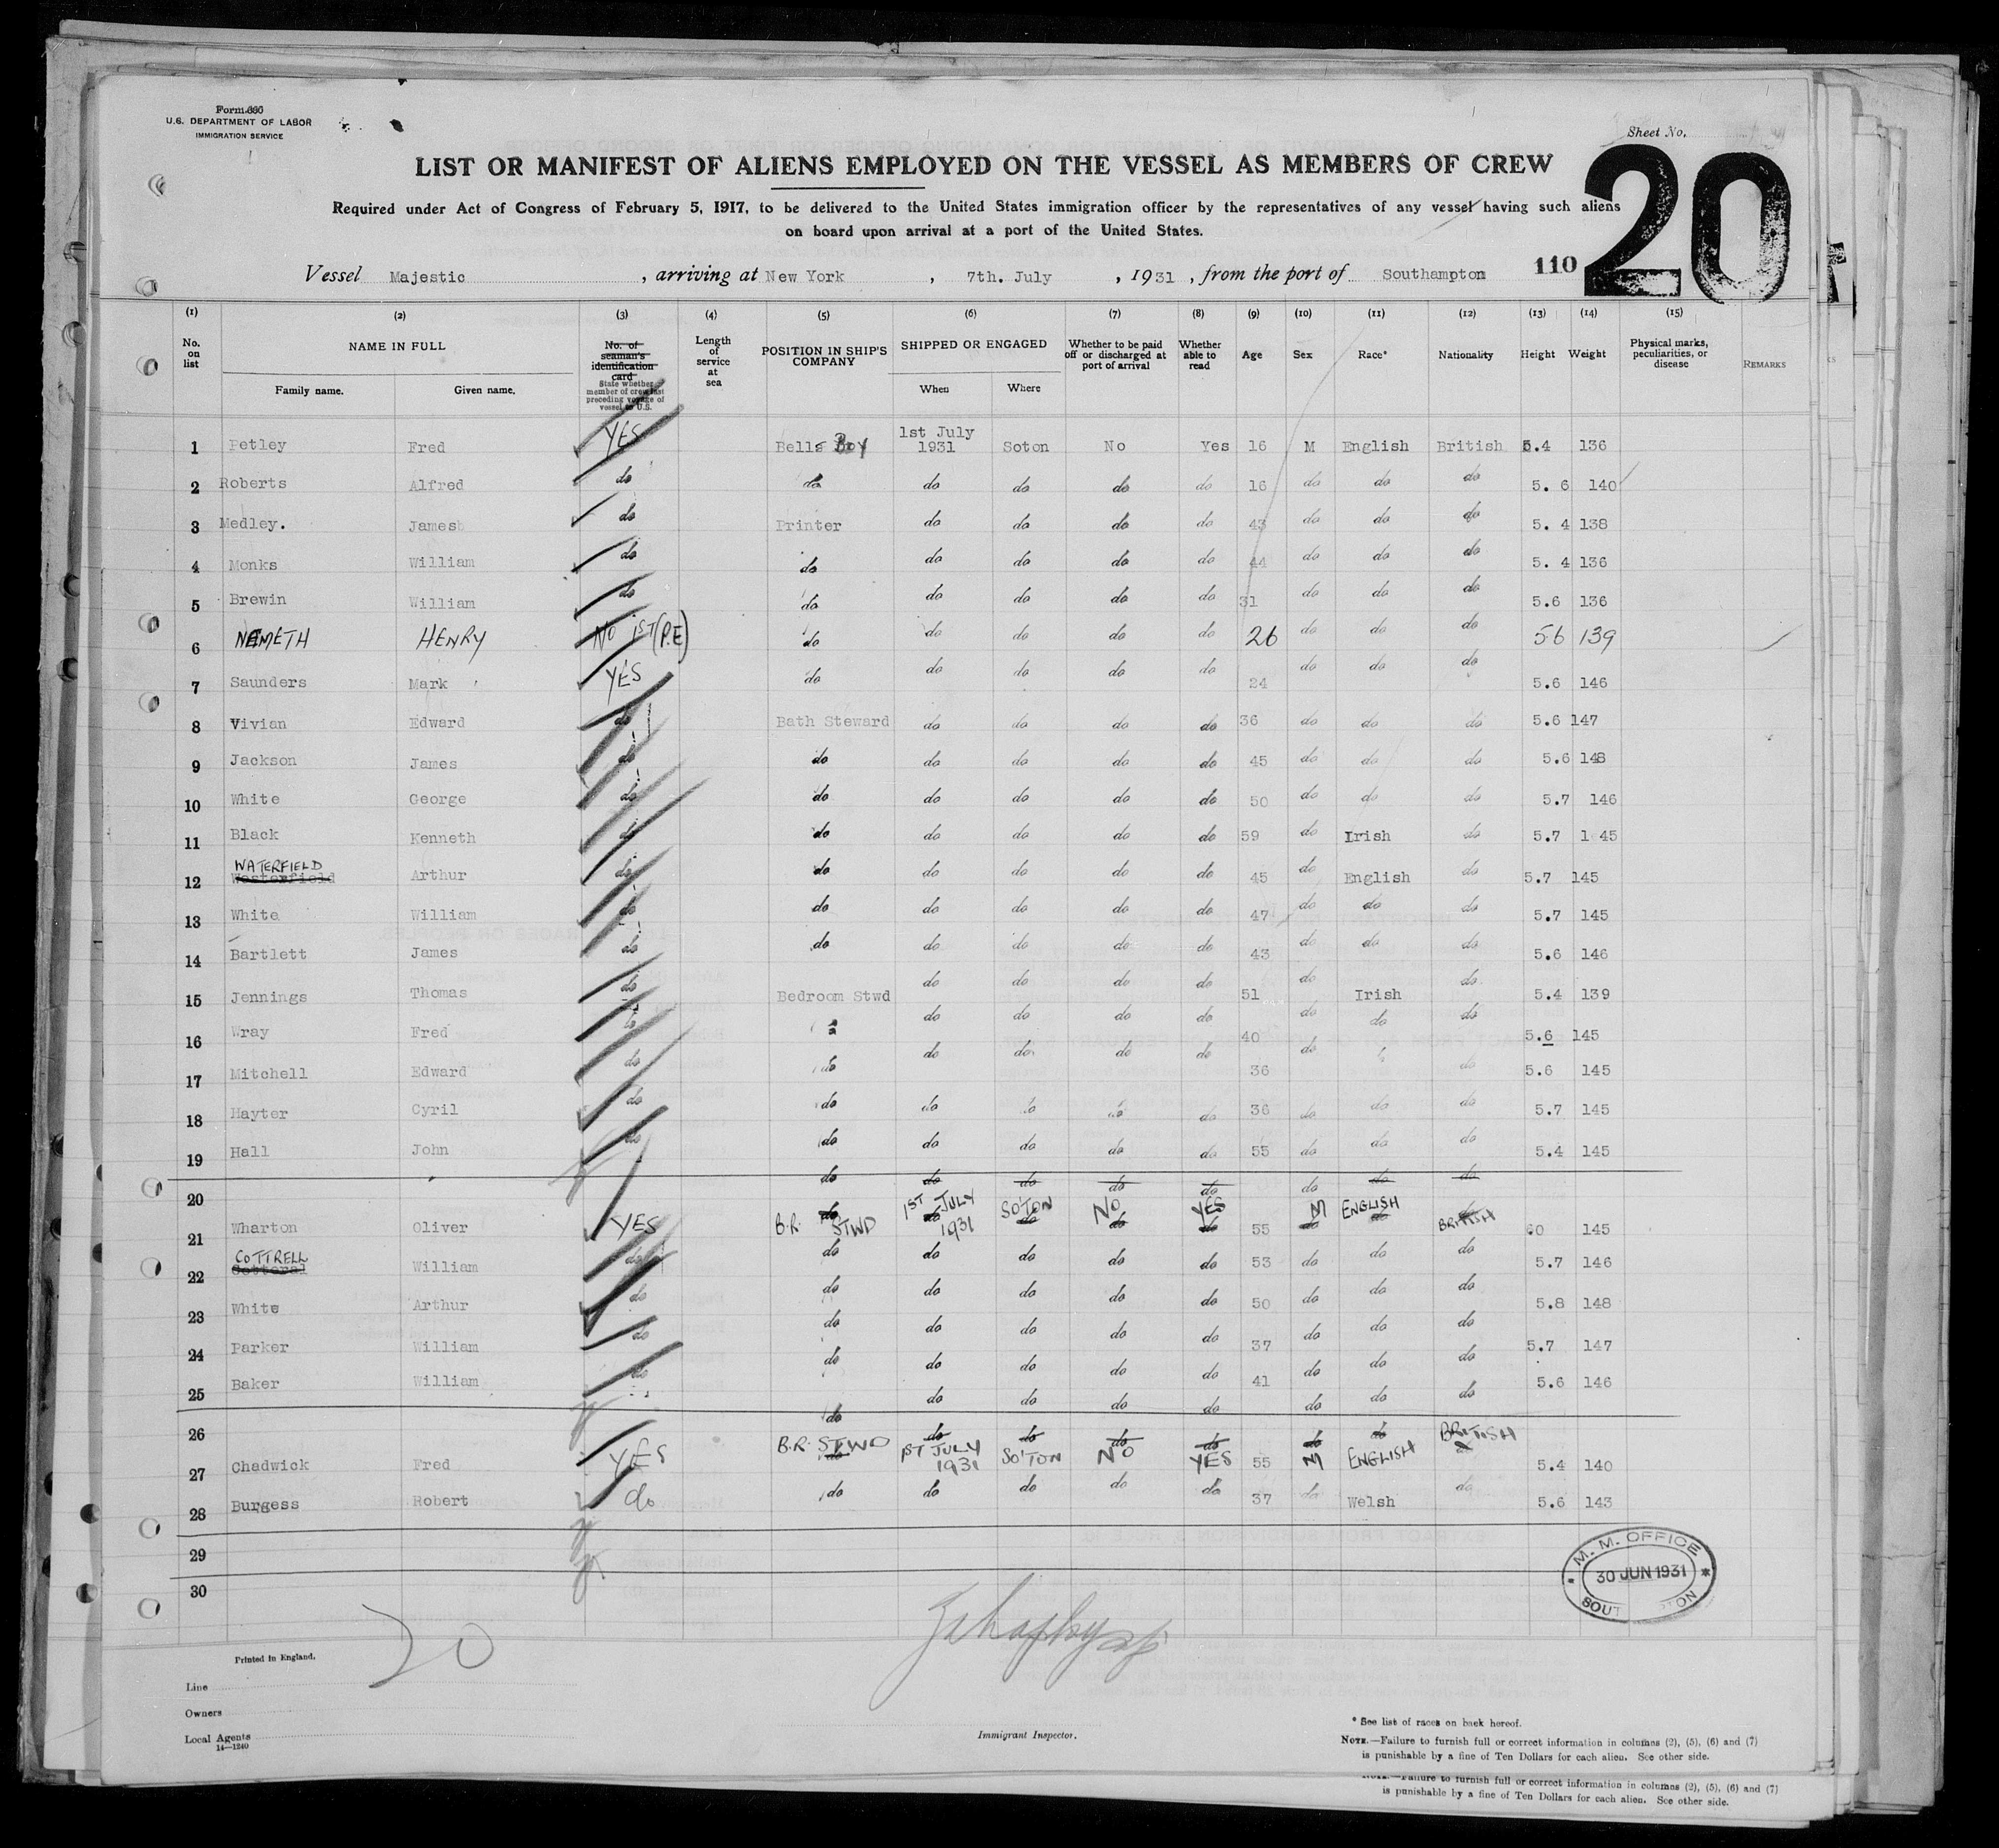 Form 680
U.S. DEPARTMENT OF LABOR
IMMIGRATION SERVICE
Sheet No.
20
LIST OR MANIFEST OF ALIENS EMPLOYED ON THE VESSEL AS MEMBERS OF CREW
Required under Act of Congress of February 5, 1917, to be delivered to the United States immigration officer by the representatives of any vessel having such aliens
on board upon arrival at a port of the United States.
Vessel Majestic , arriving at New York , 7th. July , 1931 , from the port of Southampton 110
(1) (2) (3) (4) (5) (6) (7) (8) (9) (10) (11) (12) (13) (14) (15)
No. on list NAME IN FULL Family name. Given name. No. of seaman's identification card State whether member of crew last preceding voyage of vessel to U.S. Length of service at sea POSITION IN SHIP'S COMPANY SHIPPED OR ENGAGED When Where Whether to be paid off or discharged at port of arrival Whether able to read Age Sex Race* Nationality Height Weight Physical marks, peculiarities, or disease REMARKS
1 Petley Fred YES Bell Boy 1st July 1931 Soton No Yes 16 M English British 5.4 136
2 Roberts Alfred do do do do do do 16 do do do 5. 6 140
3 Medley. James do Printer do do do do 43 do do do 5. 4 138
4 Monks William do do do do do do 44 do do do 5. 4 136
5 Brewin William do do do do do do 31 do do do 5.6 136
6 NEMETH HENRY NO 1ST (P.E) do do do do do 26 do do do 5 6 139
7 Saunders Mark YES do do do do do 24 do do do 5.6 146
8 Vivian Edward do Bath Steward do do do do 36 do do do 5.6 147
9 Jackson James do do do do do do 45 do do do 5.6 148
10 White George do do do do do do 50 do do do 5.7 146
11 Black Kenneth do do do do do do 59 do Irish do 5.7 1 45
12 WATERFIELD Westerfield Arthur do do do do do do 45 do English do 5.7 145
13 White William do do do do do do 47 do do do 5.7 145
14 Bartlett James do do do do do do 43 do do do 5.6 146
15 Jennings Thomas do Bedroom Stwd do do do do 51 do Irish do 5.4 139
16 Wray Fred do do do do do 40 do do do 5.6 145
17 Mitchell Edward do do do do do do 36 do do 5.6 145
18 Hayter Cyril do do do do do do 36 do do do 5.7 145
19 Hall John do do do do do do 55 do do do 5.4 145
20 do do do do do do do do
21 Wharton Oliver YES B.R. STWD 1ST JULY 1931 SO'TON NO YES 55 M ENGLISH BRITISH 60 145
22 COTTRELL Cotteral William do do do do do do 53 do do do 5.7 146
23 White Arthur do do do do do do 50 do do do 5.8 148
24 Parker William do do do do do do 37 do do do 5.7 147
25 Baker William do do do do do do 41 do do do 5.6 146
26 do do do do do do do do
27 Chadwick Fred YES B.R. STWD 1ST JULY 1931 SO'TON NO YES 55 M ENGLISH BRITISH 5.4 140
28 Burgess Robert do do do do do do 37 do Welsh do 5.6 143
29
30
M. M. OFFICE
30 JUN 1931
20
Printed in England.
Line
Owners
Local Agents
14—1240
Immigrant Inspector.
* See list of races on back hereof.
NOTE.—Failure to furnish full or correct information in columns (2), (5), (6) and (7)
is punishable by a fine of Ten Dollars for each alien. See other side.
NOTE.—Failure to furnish full or correct information in columns (2), (5), (6) and (7)
is punishable by a fine of Ten Dollars for each alien. See other side.